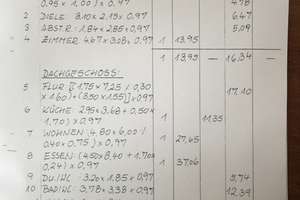 0.95 x 1,00) x 0,97 4.78
2 DIELE: 3.10 x 2.15 x 0.97 6.47
3 ABST.R: 1.84 x 2.85 x 0.97 5,09
4 ZIMMER: 4.67 x 3.28 x 0.97 1 13,95
1 13,95 — 16,34 —
DACHGESCHOSS:
5 FLUR [(1.75 x 7,25 ./. 0,30
x 1.60) + (3.50 x 1.55)] x 0.97 17.10
6 KÜCHE: 295 x 3,68 + 0.50 x
1,70) x 0,97 1 11.35
7 WOHNEN: 4.80 x 6,00 ./.
0,40 x 0.75) x 0,97 1 27,65
8 ESSEN: (4.50 x 8,40 + 1.70 x
0,24) x 0.97 1 37,06
9 DU./WC: 3.20 x 1.85 x 0.97 5,74
10 3,78 x 3.38 x 0.97 12.39